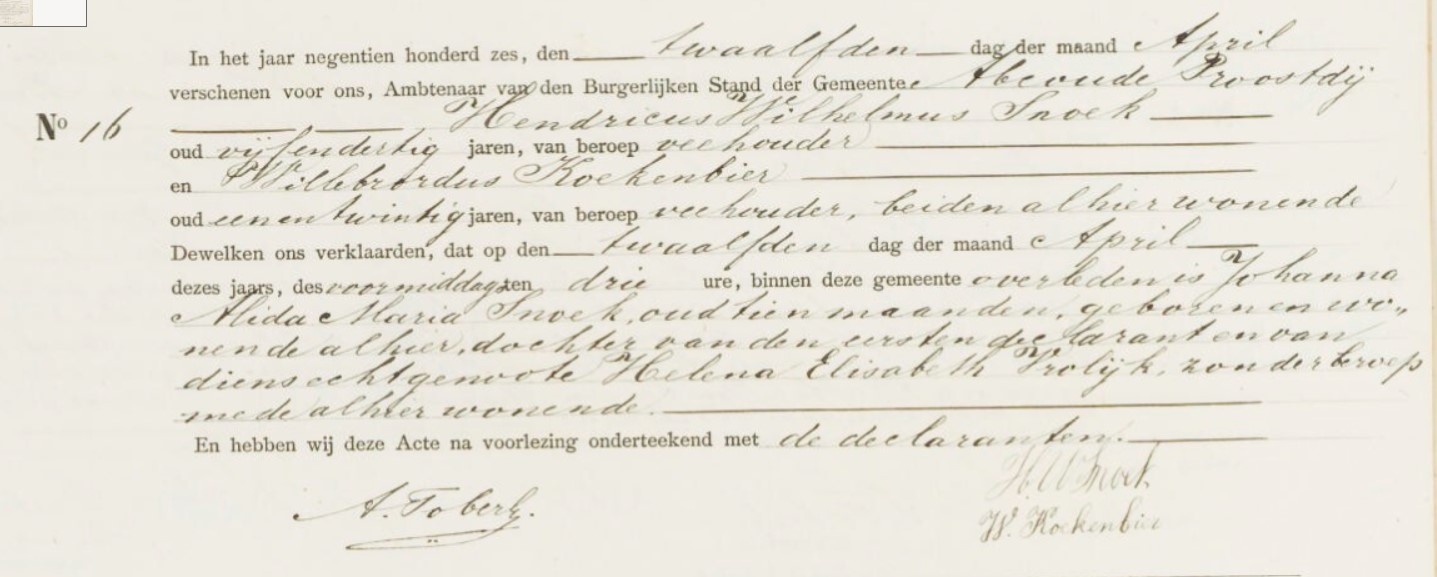 In het jaar negentien honderd zes, den twaalfden dag der maand April
verschenen voor ons, Ambtenaar van den Burgerlijken Stand der Gemeente Abcoude Proostdij
Nº 16 Hendricus Wilhelmus Snoek
oud vijfendertig jaren, van beroep veehouder
en Willebrordus Koekenbier
oud eenentwintig jaren, van beroep veehouder, beiden alhier wonende
Dewelken ons verklaarden, dat op den twaalfden dag der maand April
dezes jaars, des voormiddags ten drie ure, binnen deze gemeente overleden is Johanna
Alida Maria Snoek, oud tien maanden, geboren en wo„
nende alhier, dochter van den eersten declarant en van
diens echtgenoote Helena Elisabeth Vrolijk, zonder beroep
mede alhier wonende.
En hebben wij deze Acte na voorlezing onderteekend met de declaranten.
H.W Snoek
A. Tobert.
W. Koekenbier